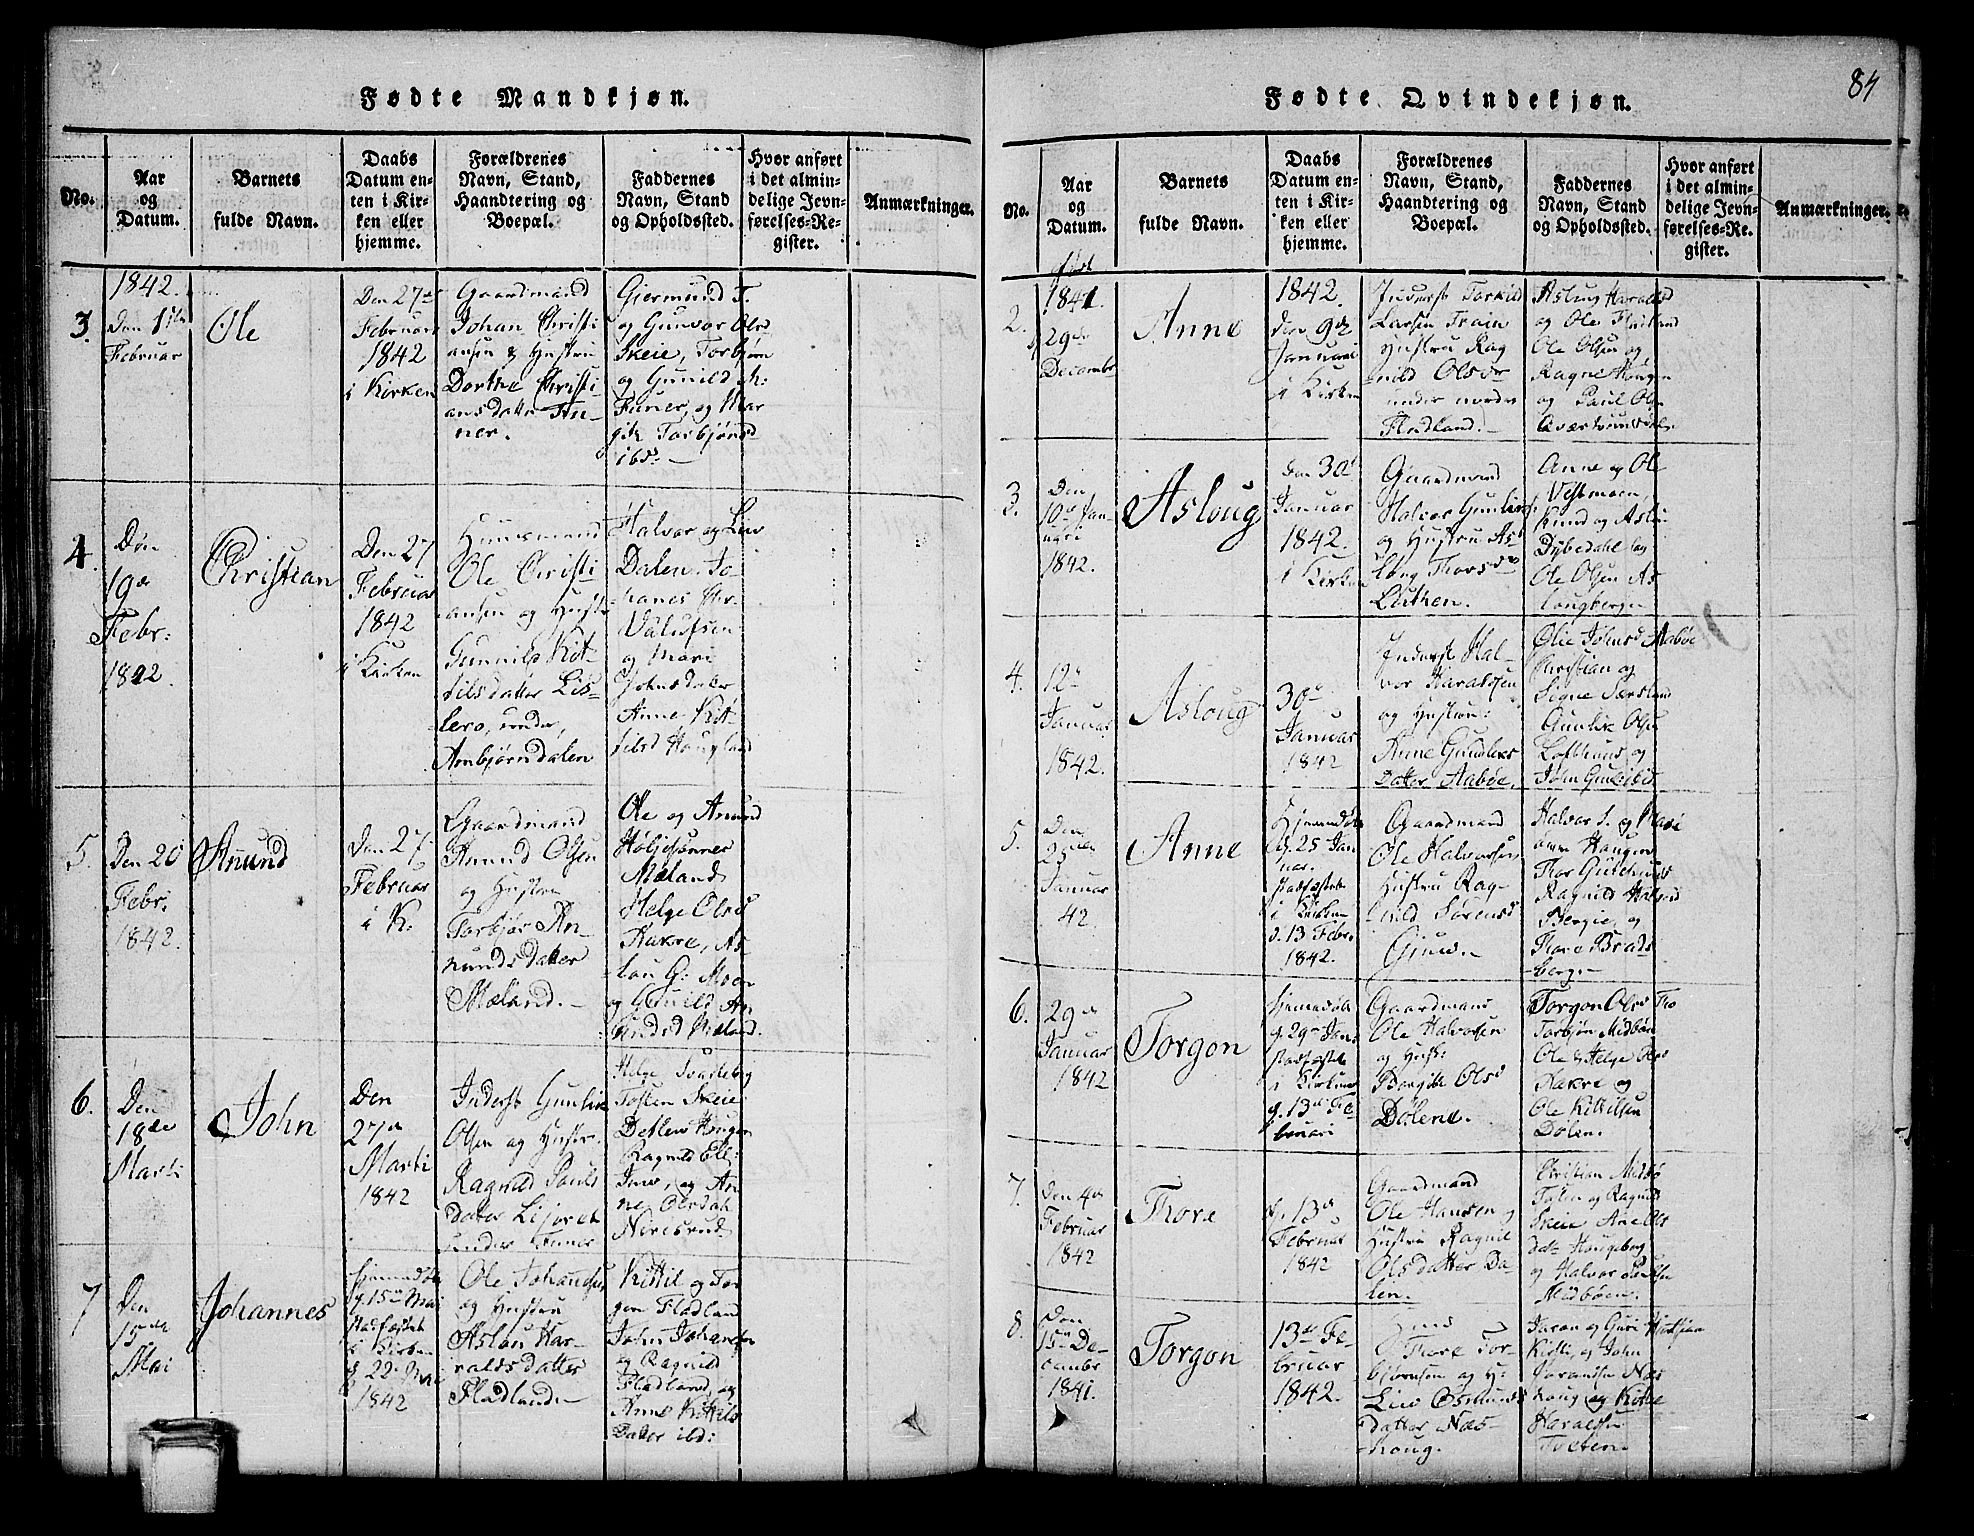 84
Fødte Mandkjøn.
No.
Aar
og
Datum.
Barnets
fulde Navn.
Daabs
Datum en-
ten i Kir-
ken eller
hjemme.
Forældrenes
Navn, Stand,
Haandtering og
Boepæl.
Faddernes
Navn, Stand
og Opholdssted.
Hvor anført
i det almin-
delige Jevn-
førelses-Re-
gister.
Anmærkninger.
3.
1842.
Den 1ste
Februar
Ole
Den 27de
Februar
1842
i Kirken
Gaardmand
Johan Christi
ansen & Hustru
Dorthe Christi
ansdatter Fu-
ner.
Gjermund T.
og Gunvor Olsd
Skeie, Torbjørn
og Gunild
Funer, og Mar
git Torbjørnsd
ibd.
4.
Den
19de
Febr:
1842.
Christian
Den 27
Februar
1842
i Kirken
Huusmand
Ole Christi
ansen og Hustr
Gunnild Kit-
tilsdatter Lis-
lero, under
Anbjørndalen
Halvor og Liv
Dalen, Jo-
hanes
og Mari
Johnsdatter
Anne Kit-
tilsd Haugland
5.
Den 20
Febr.
1842.
Anund
Den 27
Februar
i K.
Gaardmand
Anund Olsen
og Hustru
Torbjør An-
nunds datter
Mæland.
Ole og Anund
Høljesønner
Mæland
Helge Olsd
Rakre, As-
lou G. Moen
og Gunild An
undsd Mæland.
6.
Den
18de
Marti
John
Den
27de
Marti
1842
Inderst Gunlik
Olsen og Hustr.
Ragnild Pauls
datter
under Funer
Helge Svartebeg
Tosten Skeie
Detlew Hougen
Ragnild
og An
ne
7
Den
15de
Mai
Johannes
Hjemmedøbt
d. 15de Mai
stadfæstet
i Kirken
d. 22de Mai
1842
Ole Johansen
og Hustru
Aslou Har-
aldsdatter
Fladland
Kittil og Tor
gon Fladland
John Johansen
og Ragnild
Fladland, og
Anne Kittils
Datter ibd:
Fødte Qvindekjøn.
No.
Aar
og
Datum.
Barnets
fulde Navn.
Daabs
Datum en-
ten i Kir-
ken eller
hjemme.
Forældrenes
Navn, Stand,
Haandtering og
Boepæl.
Faddernes
Navn, Stand
og Opholdssted.
Hvor anført
i det almin-
delige Jevn-
førelses-Re-
gister.
Anmærkninger.
2.
1841
29de
Decembr
Anne
1842.
den 9de
Januari
i Kirken
Inderst Torkild
Larsen Train
Hustru Rag
nild Olsdr
under nordre
Fladland.
Aslaug Haralds
og Ole Fladland
Ole Olsen og
Ragne Haugen
og Paul Ols
3.
Den
10de Jan-
uari
1842.
Asloug
den 30te
Januar
1842.
i Kirken
Gaardmand
Halvor Gunliks.
og Hustru As
loug Thorsdr
Anne og Ole
Vestmoen,
Knud og Aslou
Dybedahl og
Ole Olsen As
lougberge
4.
12te
Januar
1842.
Asloug
30te
Januar
1842
Inderst Hal-
vor Haraldsen
og Hustru:
Anne Gunliks
Datter Aabøe.
Olie Johnsd Aabøe
Christian og
Signe
Gunlik Olsen
Lofthuus og
John
5.
Den
25de
Januar
42.
Anne
Hjemmedøbt
d. 25 Jan-
uar.
stadfæstet
i Kirken
d. 13 Febr.
1842.
Gaardmand
Ole Halvorsen,
Hustru Rag-
nild Sørensd
Halvor S. og Mari
Haugen
Thor
Ragnild
Bergie, og
Thore Brads
berge
6.
29de
Januar
1842
Torgon
Hjemmedøbt
d. 29de Jan:
stadfæstet
i Kirken
d. 13de Fe
bruari
Gaardmand
Ole Halvorsen
og Hustr:
Bergite Olsd
Dølene.
Torgon Olsd
Torbjør Midbøn
Ole & Helge Olsd
Rakre og
Ole Kittilsen
Dølen.
7.
Den 4de
Februar
1842
Thore
d. 13de
Februar
1842
Gaardmand
Ole Hansen og
Hustru Ragnil
Olsdatter Da-
len.
Christian Midbø
og Ragnild
Skeie Ane Ols
datter Haugebeg
og Halvor
Midbøen.
8.
Den
15de De-
cembr
1841.
Torgon
13de Fe-
bruar
1842.
Thore Tor-
bjørnsen og H:
Liv Osmunds
datter Næs-
houg.
Joran og Guri
og John
Joransen Næs
houg og
Haraldsen
Tveten.